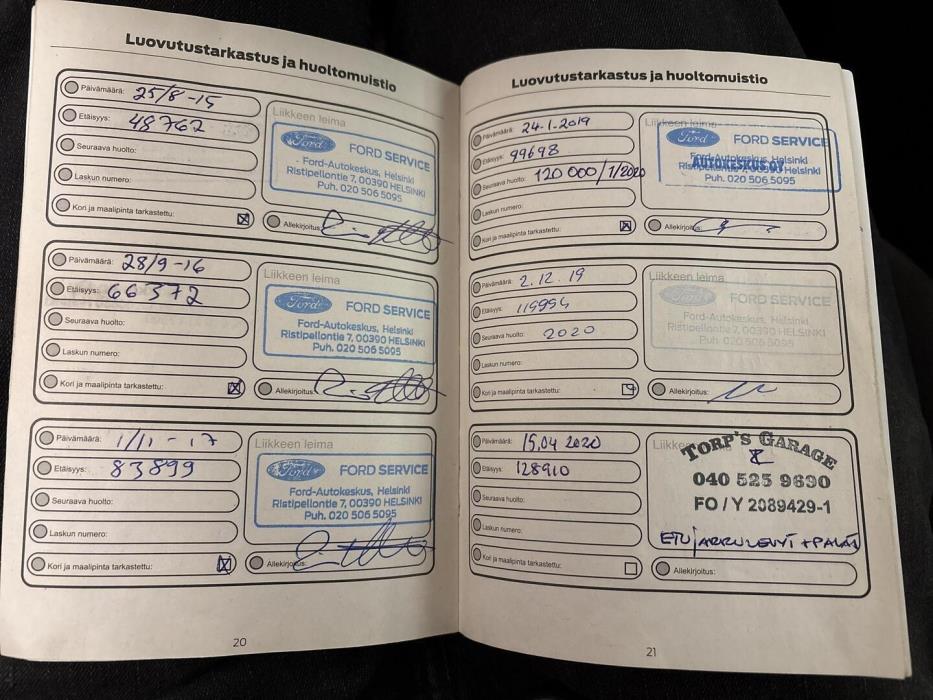 Luovutustarkastus ja huoltomuistio
Päivämäärä: 25/8-15
Etäisyys: 48762
Seuraava huolto:
Laskun numero:
Kori ja maalipinta tarkastettu:
Liikkeen leima
Ford FORD SERVICE
Ford-Autokeskus, Helsinki
Ristipellontie 7, 00390 HELSINKI
Puh. 020 506 5095
Allekirjoitus:
Päivämäärä: 28/9-16
Etäisyys: 66372
Seuraava huolto:
Laskun numero:
Kori ja maalipinta tarkastettu:
Liikkeen leima
Ford FORD SERVICE
Ford-Autokeskus, Helsinki
Ristipellontie 7, 00390 HELSINKI
Puh. 020 506 5095
Allekirjoitus:
Päivämäärä: 1/11-17
Etäisyys: 83899
Seuraava huolto:
Laskun numero:
Kori ja maalipinta tarkastettu:
Liikkeen leima
Ford FORD SERVICE
Ford-Autokeskus, Helsinki
Ristipellontie 7, 00390 HELSINKI
Puh. 020 506 5095
Allekirjoitus:
20
Luovutustarkastus ja huoltomuistio
Päivämäärä: 24.1.2019
Etäisyys: 99698
Seuraava huolto: 120 000/1/2020
Laskun numero:
Kori ja maalipinta tarkastettu:
Liikkeen leima
Ford FORD SERVICE
Ford-Autokeskus, Helsinki
AUTOKESKUS OY
Puh. 020 506 5095
Allekirjoitus:
Päivämäärä: 2.12.19
Etäisyys: 119994
Seuraava huolto: 2020
Laskun numero:
Kori ja maalipinta tarkastettu:
Liikkeen leima
Ford FORD SERVICE
Ford-Autokeskus, Helsinki
Ristipellontie 7, 00390 HELSINKI
Puh. 020 506 5095
Allekirjoitus:
Päivämäärä: 15.04 2020
Etäisyys: 128910
Seuraava huolto:
Laskun numero:
Kori ja maalipinta tarkastettu:
TORP'S GARAGE
040 525 9690
FO / Y 2089429-1
ETUJARRULEVYT + PALAT
Allekirjoitus:
21